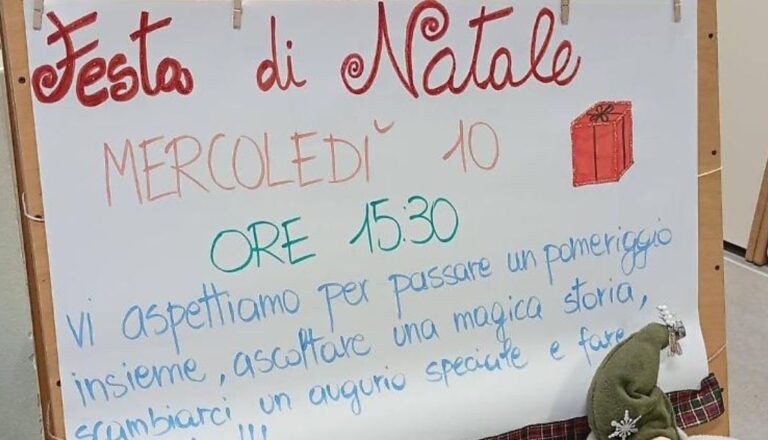 Festa di Natale
MERCOLEDÌ 10
ORE 15:30
Vi aspettiamo per passare un pomeriggio
insieme, ascoltare una magica storia,
scambiarci un augurio speciale e fare
!!!